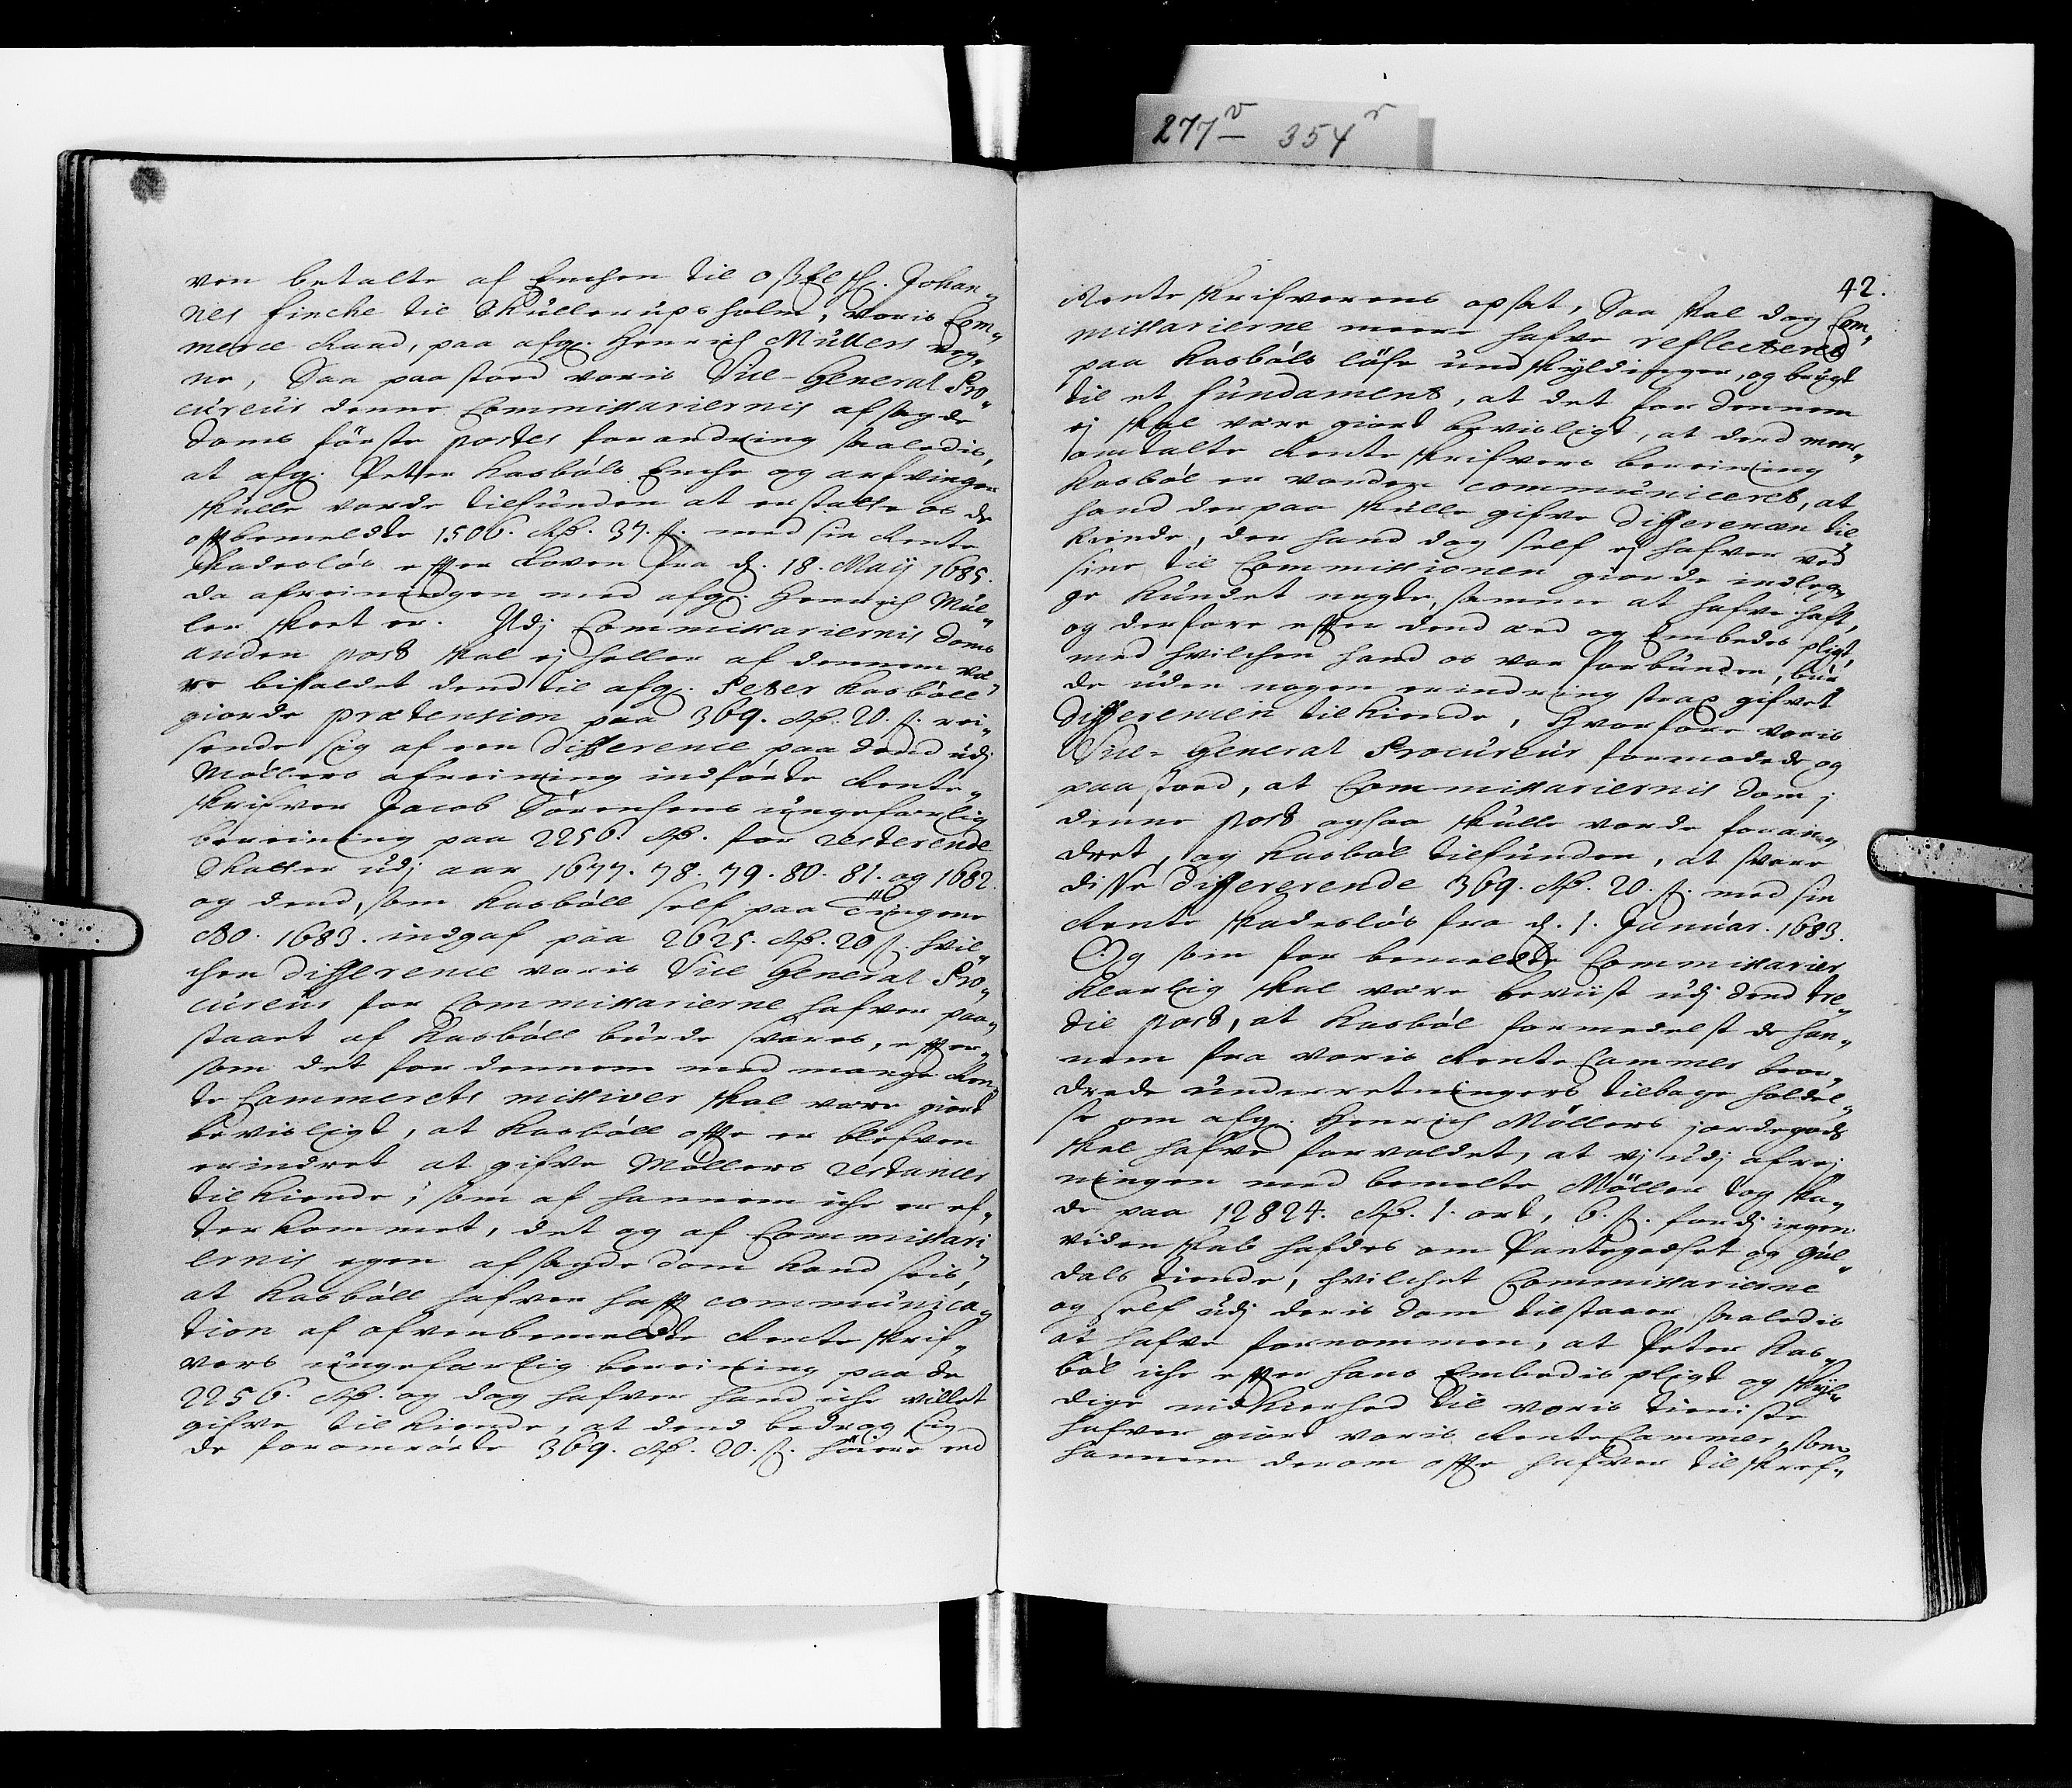 277v – 354r
ven betalte af Enchen til Oß Elskl. Johan„
nes Finche til Skullerupsholm, voris Com„
merce Raad, paa afg. Henrich Müllers veg„
ne, Saa paastoed voris Vice-General Pro„
cureur denne Commissariernis afsagde
doms første postes forandring saaledis,
at afg. Peter Kasbøls Enche og arfvinger
skulle vorde tilfunden at erstatte os de
oftbemeldte 1506. Rd. 37. s. med sin Rente
skadesløs efter Loven fra d. 18. Maij 1685.
da afreigningen med afg. Henrich Møl„
ler skeet er. Udj Commissariernis doms
anden post skal ej heller af dennem væ„
re bifaldet dend til afg. Peter Kasbøll
giorde prætension paa 369. Rd. 20. s. rei„
sende sig af een Difference paa dend udj
Møllers afreigning indførte Rente„
skrifver Jacob Sørensens ungefærlig
bereigning paa 2256. Rd. for resterende
Skatter udj aar 1677. 78. 79. 80. 81. og 1682.
og dend, som Kasbøll self paa
Ao. 1683. indgaf paa 2625. Rd. 20 s. hvil„
chen Difference voris Vice General Pro„
cureur for Commissarierne hafver paa„
staaet af Kasbøll burde svares, efter„
som det for dennem med mange Ren„
te Cammerets missiver skal være giort
bevisligt, at Kasbøll ofte er blefven
erindret at gifve Møllers restancer
tilkiende, som af hannem iche er ef„
terkommet, det og af Commissari„
ernis egen afsagde dom kand seis,
at Kasbøll hafver haft communica„
tion af ofvenbemeldte Rente skrif„
vers ungefærlig bereigning paa de
2256. Rd. og dog hafver hand iche villet
gifve tilkiende, at dend bedrog sig
de foromrørte 369. Rd. 20. s. høiere end
42.
Rente skrifverens opsat, Saa skal dog Com„
missarierne meere hafve reflecteret
paa Kasbøls løse undskyldinger, og brugt
til et Fundament, at det for dennem
ej skal være giort bevisligt, at dend meer„
omtalte Rente skrifvers bereigning
Kasbøl er vorden communiceret, at
hand derpaa skulle gifve Differencen til„
kiende, der hand dog self ej hafver ved
sine til Commissionen giorde indleg„
ge kundet negte, samme at hafve haft,
og derfore efter dend æed og Embedes pligt,
med hvilchen hand os var forbunden, bur„
de uden nogen erindring strax gifvet
Differencen tilkiende, Hvorfore voris
Vice-General Procureur formodede og
paastoed, at Commissariernis dom j
denne post ogsaa skulle vorde foran„
dret, og Kasbøl tilfunden, at svare
disse Differerende 369. Rd. 20. s. med sin
Rente skadesløs fra d. 1. Januar. 1683.
Og som for bemeldte Commissarier
klarlig skal være beviist udj dend tre„
die post, at Kasbøl formedelst de han„
nem fra voris Rente Cammer beor„
drede underretningers tilbage holdel„
se om afg. Henrich Møllers jordegods
skal hafve forvoldet, at vj udj afrej„
ningen med bemelte Møller tog ska„
de paa 12824. Rd. 1. ort, 6. s. fordj ingen
videnskab hafdes om Pantegodset og Gul„
dals tiende, hvilchet Commissarierne
og self udj deris dom tilstaaer saaledis
at hafve fornommen, at Peter Kas„
bøl iche efter hans Embedis pligt og skyl„
dige nidkierhed til voris tieniste
hafver giort voris Rente Cammer, som
hannem derom ofte hafver tilskref„